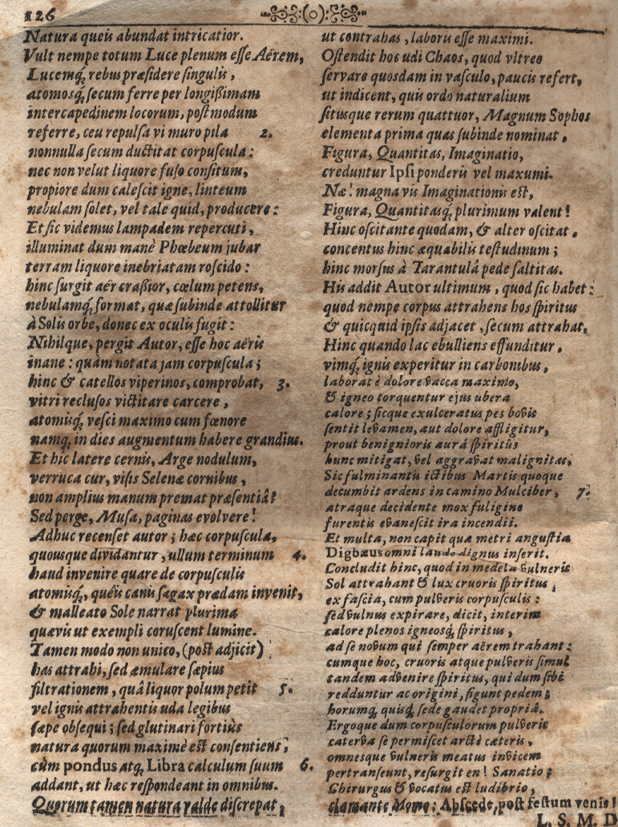 126
Natura queis abundat intricatior.
Vult nempe totum Luce plenum esse Aërem,
Lucemq, rebus præsidere singulis,
atomosq, secum ferre per longißimam
intercapedinem locorum, post modum
referre, ceu repulsa vi muro pila 2.
nonnulla secum ductitat corpuscula:
nec non velut liquore fuso consitum,
propiore dum calescit igne, linteum
nebulam solet, vel tale quid, producere:
Et sic videmus lampadem repercuti,
illuminat dum manè Phœbeum jubar
terram liquore inebriatam roscido:
hinc surgit aër crassior, cœlum petens,
nebulamq, format, quæ subinde attollitur
à Solis orbe, donec ex oculis fugit:
Nihilque, pergit Autor, esse hoc aëris
inane: quàm notata jam corpuscula;
hinc & catellos viperinos, comprobat, 3.
vitri reclusos victitare carcere,
atomisq, vesci maximo cum fœnore
namq, in dies augmentum habere grandius.
Et hic latere cernis, Arge nodulum,
verruca cur, visis Selenæ cornibus,
non amplius manum premat præsentiâ?
Sed perge, Musa, paginas evolvere!
Adhuc recenset autor; hæc corpuscula,
quousque dividantur, ullum terminum 4.
haud invenire quare de corpusculis
atomisq, quéis canis sagax prædam invenit,
& malleato Sole narrat plurima
quævis ut exempli coruscent lumine.
Tamen modo non unico, (post adjicis)
has attrahi, sed æmulare sæpius
filtrationem, quâ liquor polum petit 5.
vel ignis attrahentis uda legibus
sæpe obsequi; sed glutinari fortiùs
natura quorum maximè est consentiens,
cùm pondus atq, Libra calculum suum 6.
addant, ut hæc respondeant in omnibus.
Quorum tamen natura valde discrepat,
ut contrahas, laboris esse maximi.
Ostendit hos udi Chaos, quod vltreo
servare quosdam in vasculo, paucis refert,
ut indicent, quis ordo naturalium
situsque rerum quattuor, Magnum Sophos
elementa prima quas subinde nominat,
Figura, Quantitas, Imaginatio,
creduntur Ipsi ponderis vel maxumi.
Næ! magna vis Imaginationis est,
Figura, Quantitasq, plurimum valent!
Hinc oscitante quodam, & alter oscitat,
concentus hinc æquabilis testudinum;
hinc morsus à Tarantulá pede saltitas.
His addit Autor ultimum, quod sic habet:
quod nempe corpus attrahens hos spiritus
& quicquid ipsis adjacet, secum attrahat.
Hinc quando lac ebulliens effunditur,
vimq, ignis experitur in carbonibus,
laborat è dolore vacca maximo,
& igneo torquentur ejus ubera
calore; sicque exulceratus pes bovis
sentit levamen, aut dolore affligitur,
prout benignioris aurá spiritûs
hunc mitigat, vel aggravat malignitas,
Sic fulminantis ictibus Martis quoque
decumbit ardens in camino Mulciber, 7.
atraque decidente mox fuligine
furentis evanescit ira incendii.
Et multa, non capit quæ metri angustia
Digbæus omni laude dignus inserit.
Concludit hinc, quod in medela vulneris
Sol attrahant & lux cruoris spiritus,
ex fascia, cum pulveris corpusculis:
sed vulnus expirare, dicit, interim
calore plenos igneosq, spiritus,
ad se novum qui semper aërem trahant:
cumque hoc, cruoris atque pulveris simul
tandem advenire spiritus, qui dum sibi
redduntur ac origini, figunt pedem;
horumq, quisq, sede gaudet propriâ.
Ergoque dum corpusculorum pulveris
caterva se permiscet arctè cæteris,
omnesque vulneris meatus invicem
pertranseunt, resurgit en! Sanatio;
Chirurgus & vocatus est ludibrio,
clamante Momo: Abscede, post festum venis!
L. S. M. D.